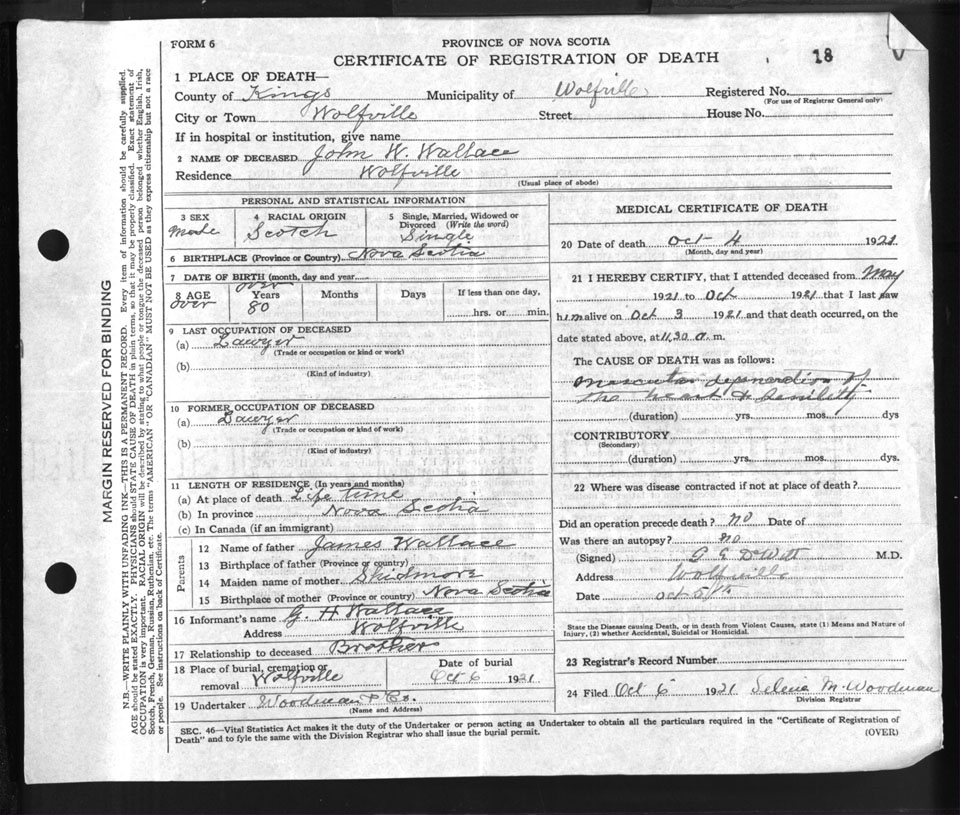 FORM 6
PROVINCE OF NOVA SCOTIA
CERTIFICATE OF REGISTRATION OF DEATH
18
1 PLACE OF DEATH—
County of Kings Municipality of Wolfville Registered No.
(For use of Registrar General only)
City or Town Wolfville Street House No.
If in hospital or institution, give name
2 NAME OF DECEASED John W. Wallace
Residence Wolfville
(Usual place of abode)
PERSONAL AND STATISTICAL INFORMATION
3 SEX 4 RACIAL ORIGIN 5 Single, Married, Widowed or Divorced (Write the word)
Male Scotch Single
6 BIRTHPLACE (Province or Country) Nova Scotia
7 DATE OF BIRTH (month, day and year)
8 AGE Years Months Days If less than one day,
over over 80 hrs. or min.
9 LAST OCCUPATION OF DECEASED
(a) Lawyer
(Trade or occupation or kind or work)
(b)
(Kind of industry)
10 FORMER OCCUPATION OF DECEASED
(a) Lawyer
(Trade or occupation or kind of work)
(b)
(Kind of industry)
11 LENGTH OF RESIDENCE (In years and months)
(a) At place of death Life time
(b) In province Nova Scotia
(c) In Canada (if an immigrant)
Parents
12 Name of father James Wallace
13 Birthplace of father (Province or country)
14 Maiden name of mother Skidmore
15 Birthplace of mother (Province or country) Nova Scotia
16 Informant's name G. H Wallace
Address Wolfville
17 Relationship to deceased Brother
18 Place of burial, cremation or removal Wolfville Date of burial Oct 6 1921
19 Undertaker Woodman & Co.
(Name and Address)
MEDICAL CERTIFICATE OF DEATH
20 Date of death Oct 4 1921
(Month, day and year)
21 I HEREBY CERTIFY, that I attended deceased from May
1921 to Oct 1921 that I last saw
him alive on Oct 3 1921 and that death occurred, on the
date stated above, at 11.30 a. m.
The CAUSE OF DEATH was as follows:
of
the heart & Senility
(duration) yrs. mos. dys
CONTRIBUTORY
(Secondary)
(duration) yrs. mos. dys.
22 Where was disease contracted if not at place of death?
Did an operation precede death? no Date of
Was there an autopsy? no
(Signed) G E DeWitt M.D.
Address Wolfville
Date Oct 5th
State the Disease causing Death, or in death from Violent Causes, state (1) Means and Nature of
Injury, (2) whether Accidental, Suicidal or Homicidal.
23 Registrar's Record Number
24 Filed Oct 6 1921 Selena M. Woodman
Division Registrar
SEC. 46—Vital Statistics Act makes it the duty of the Undertaker or person acting as Undertaker to obtain all the particulars required in the "Certificate of Registration of
Death" and to fyle the same with the Division Registrar who shall issue the burial permit.
(OVER)
MARGIN RESERVED FOR BINDING
N.B.—WRITE PLAINLY WITH UNFADING INK—THIS IS A PERMANENT RECORD. Every item of information should be carefully supplied.
AGE should be stated EXACTLY. PHYSICIANS should STATE CAUSE OF DEATH in plain terms, so that it may be properly classified. Exact statement of
OCCUPATION is very important. RACIAL ORIGIN will be described by stating to what people or tongue the deceased person belonged whether English, Irish,
Scotch, French, German, Russian, Ruthenian, etc. The terms "AMERICAN" OR "CANADIAN" MUST NOT BE USED as they express citizenship but not a race
or people. See instructions on back of Certificate.